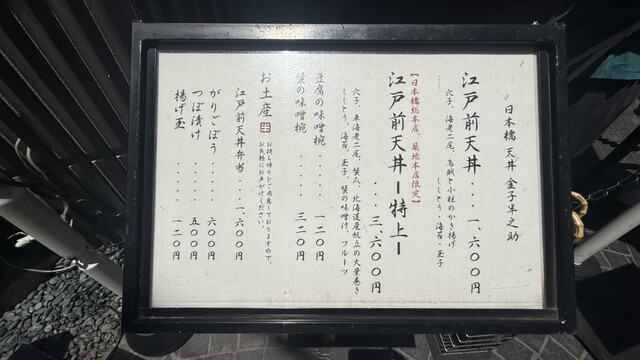 日本橋 天丼 金子半之助
江戸前天丼・・・一、六〇〇円
穴子、海老二尾、烏賊と小柱のかき揚げ
ししとう・海苔・玉子
江戸前天丼ー特上ー
【日本橋総本店、築地本店限定】
・・・三、六〇〇円
穴子、車海老二尾、蟹爪、北海道産帆立の大葉巻き
ししとう、海苔、玉子、蟹の味噌汁、フルーツ
豆腐の味噌椀・・・・一二〇円
蟹の味噌椀・・・・・三二〇円
お土産 半
お持ち帰りもご用意しておりますので、
お気軽にお声がけください。
江戸前天丼弁当・・・一、六〇〇円
がりごぼう・・・・・六〇〇円
つぼ漬け・・・・・五〇〇円
揚げ玉・・・・・一二〇円